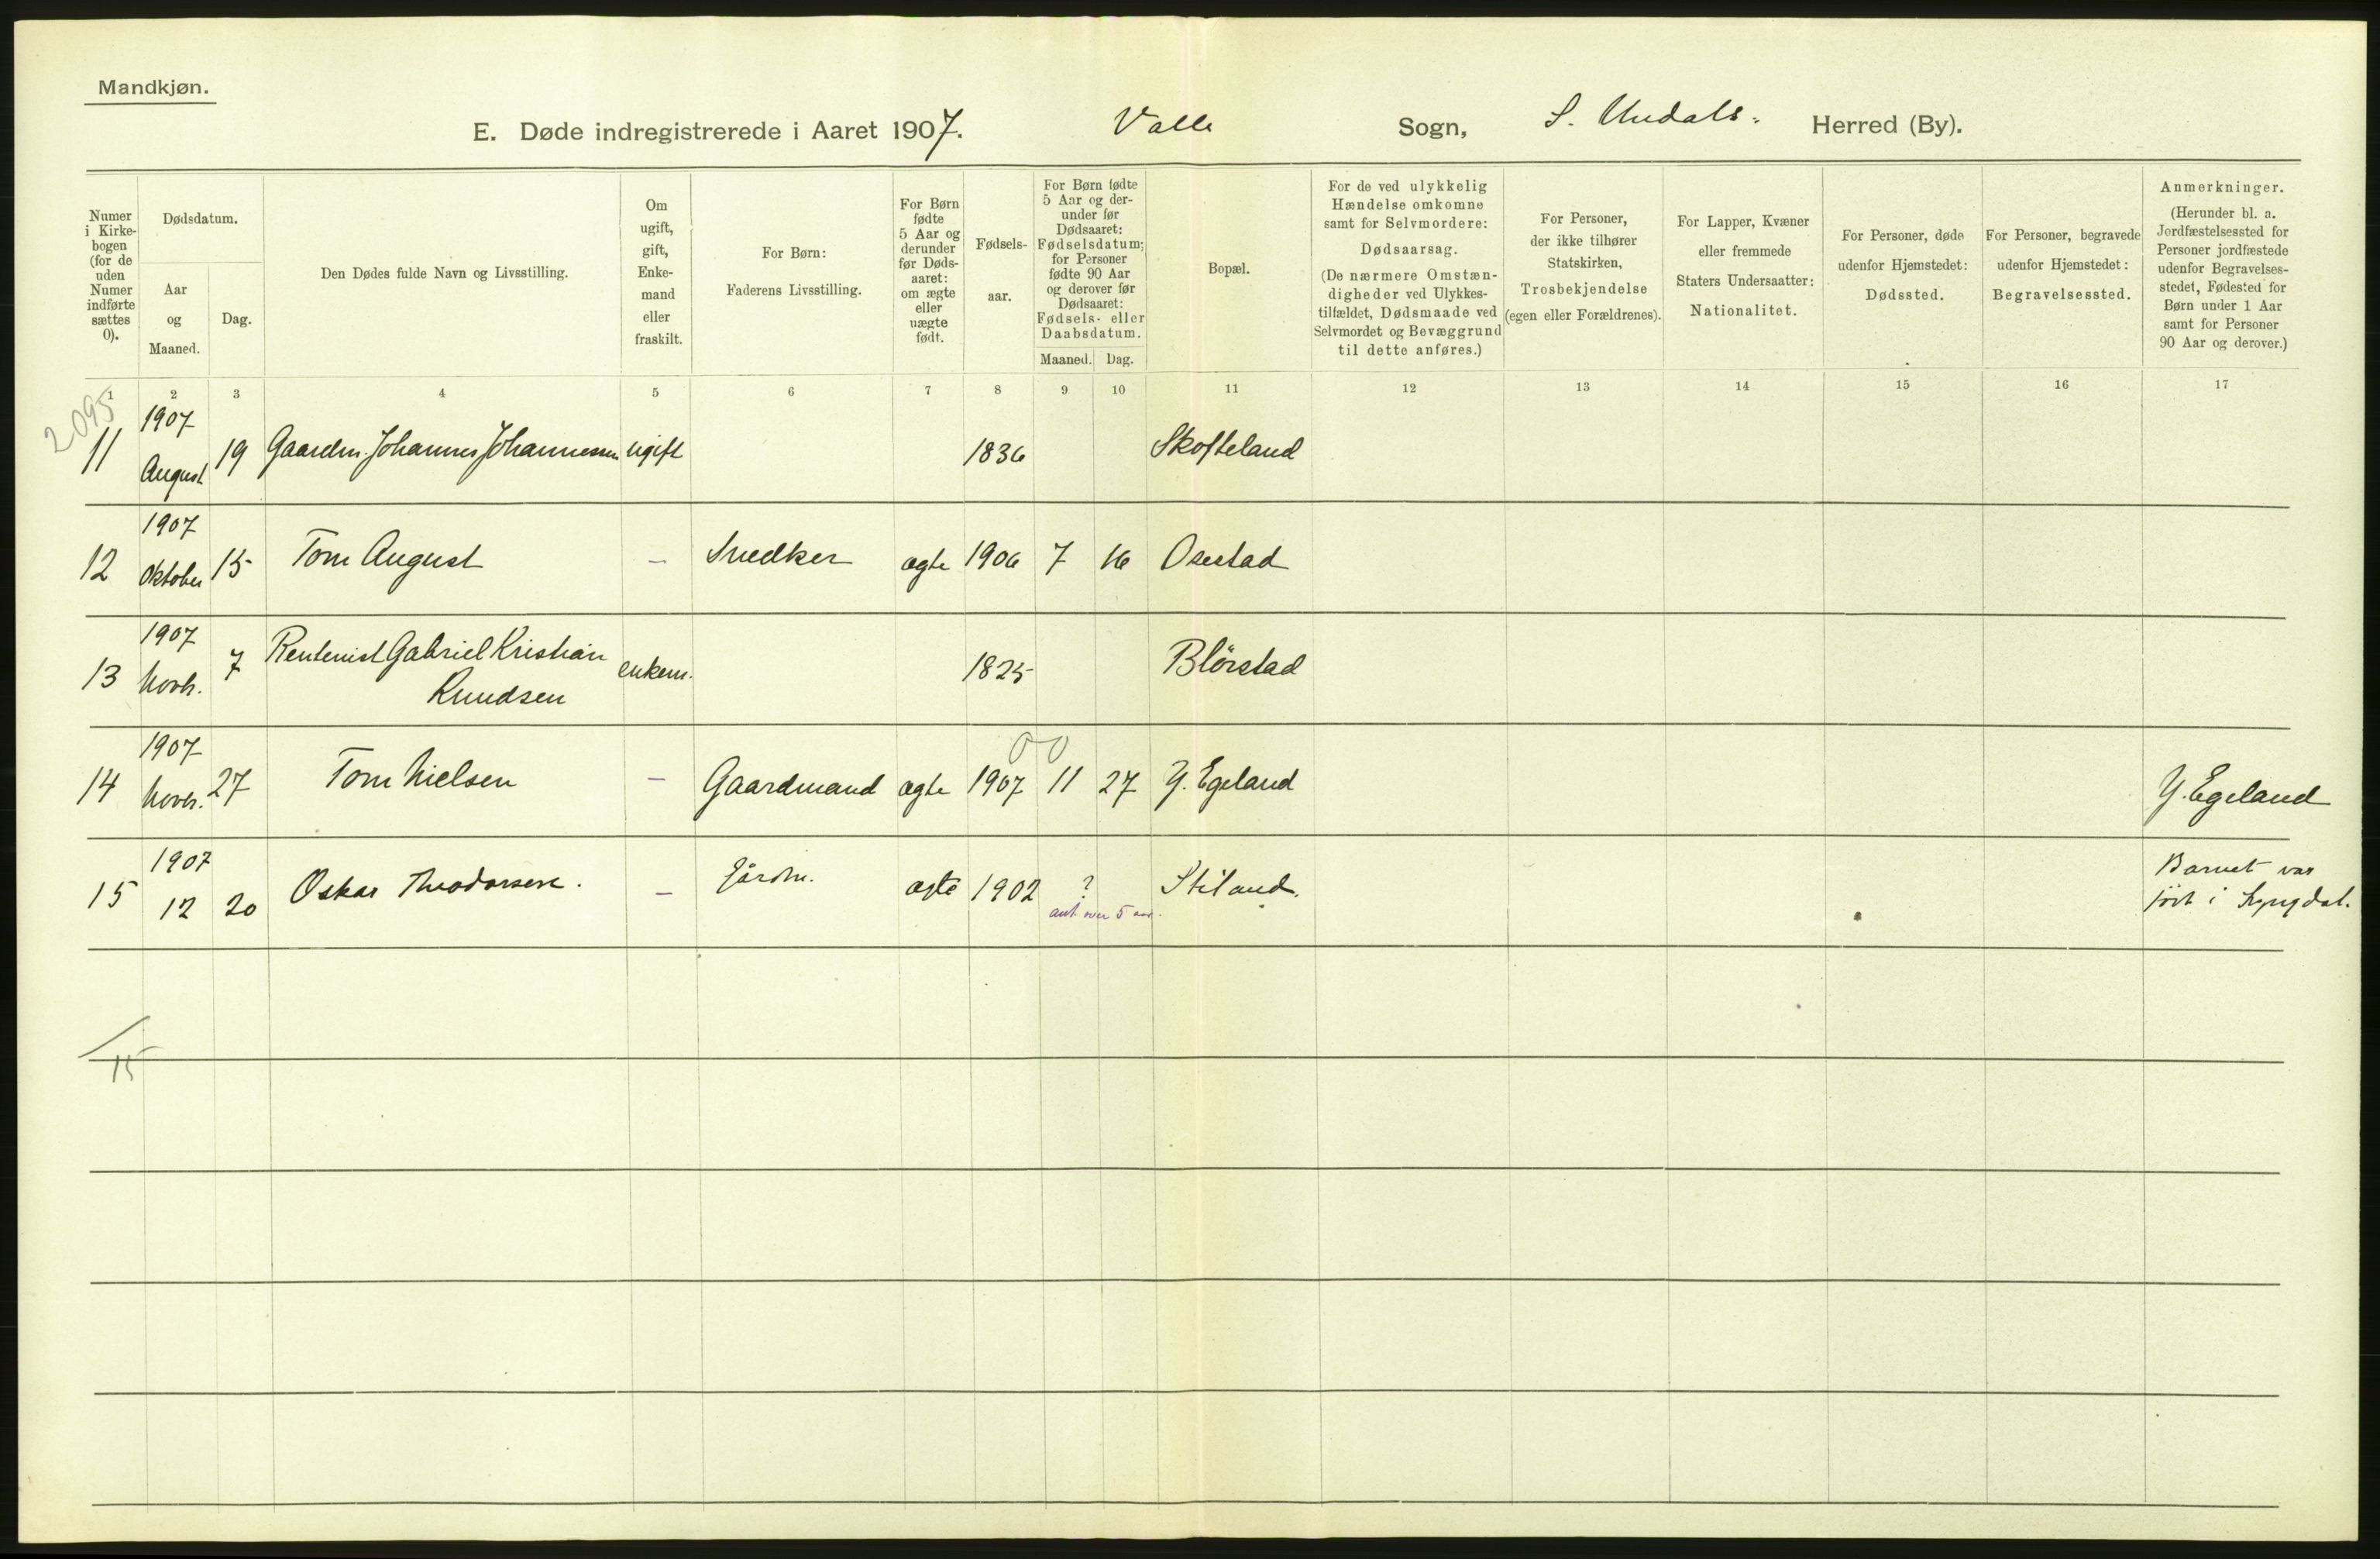 Mandkjøn.
E. Døde indregistrerede i Aaret 1907. Valle Sogn, S. Undals. Herred (By).
Numer i Kirkebogen (for de uden Numer indførte sættes 0).
Dødsdatum.
Aar og Maaned.
Dag.
Den Dødes fulde Navn og Livsstilling.
Om ugift, gift, Enkemand eller fraskilt.
For Børn: Faderens Livsstilling.
For Børn fødte 5 Aar og derunder før Dødsaaret: om ægte eller uægte født.
Fødselsaar.
For Børn fødte 5 Aar og derunder før Dødsaaret: Fødselsdatum; for Personer fødte 90 Aar og derover før Dødsaaret: Fødsels- eller Daabsdatum.
Maaned. Dag.
Bopæl.
For de ved ulykkelig Hændelse omkomne samt for Selvmordere: Dødsaarsag. (De nærmere Omstændigheder ved Ulykkestilfældet, Dødsmaade ved Selvmordet og Bevæggrund til dette anføres.)
For Personer, der ikke tilhører Statskirken, Trosbekjendelse (egen eller Forældrenes).
For Lapper, Kvæner eller fremmede Staters Undersaatter: Nationalitet.
For Personer, døde udenfor Hjemstedet: Dødssted.
For Personer, begravede udenfor Hjemstedet: Begravelsessted.
Anmerkninger. (Herunder bl. a. Jordfæstelsessted for Personer jordfæstede udenfor Begravelsesstedet, Fødested for Børn under 1 Aar samt for Personer 90 Aar og derover.)
1 2 3 4 5 6 7 8 9 10 11 12 13 14 15 16 17
2095
11 1907 August 19 Gaardm. Johannes Johannessen ugift 1836 Skofteland
12 1907 Oktober 15 Tom August – Snedker ægte 1906 7 16 Osestad
13 1907 Novbr. 7 Rentenist Gabriel Kristian Knudsen enkem. 1825 Blörstad
00
14 1907 Novbr. 27 Tom Nielsen – Gaardmand ægte 1907 11 27 Y. Egeland Y. Egeland
15 1907 12 20 Oskar Theodorsen. – Gårdm. ægte 1902 ? ant. over 5 aar. Stiland. Barnet var född i Lyngdal.
15